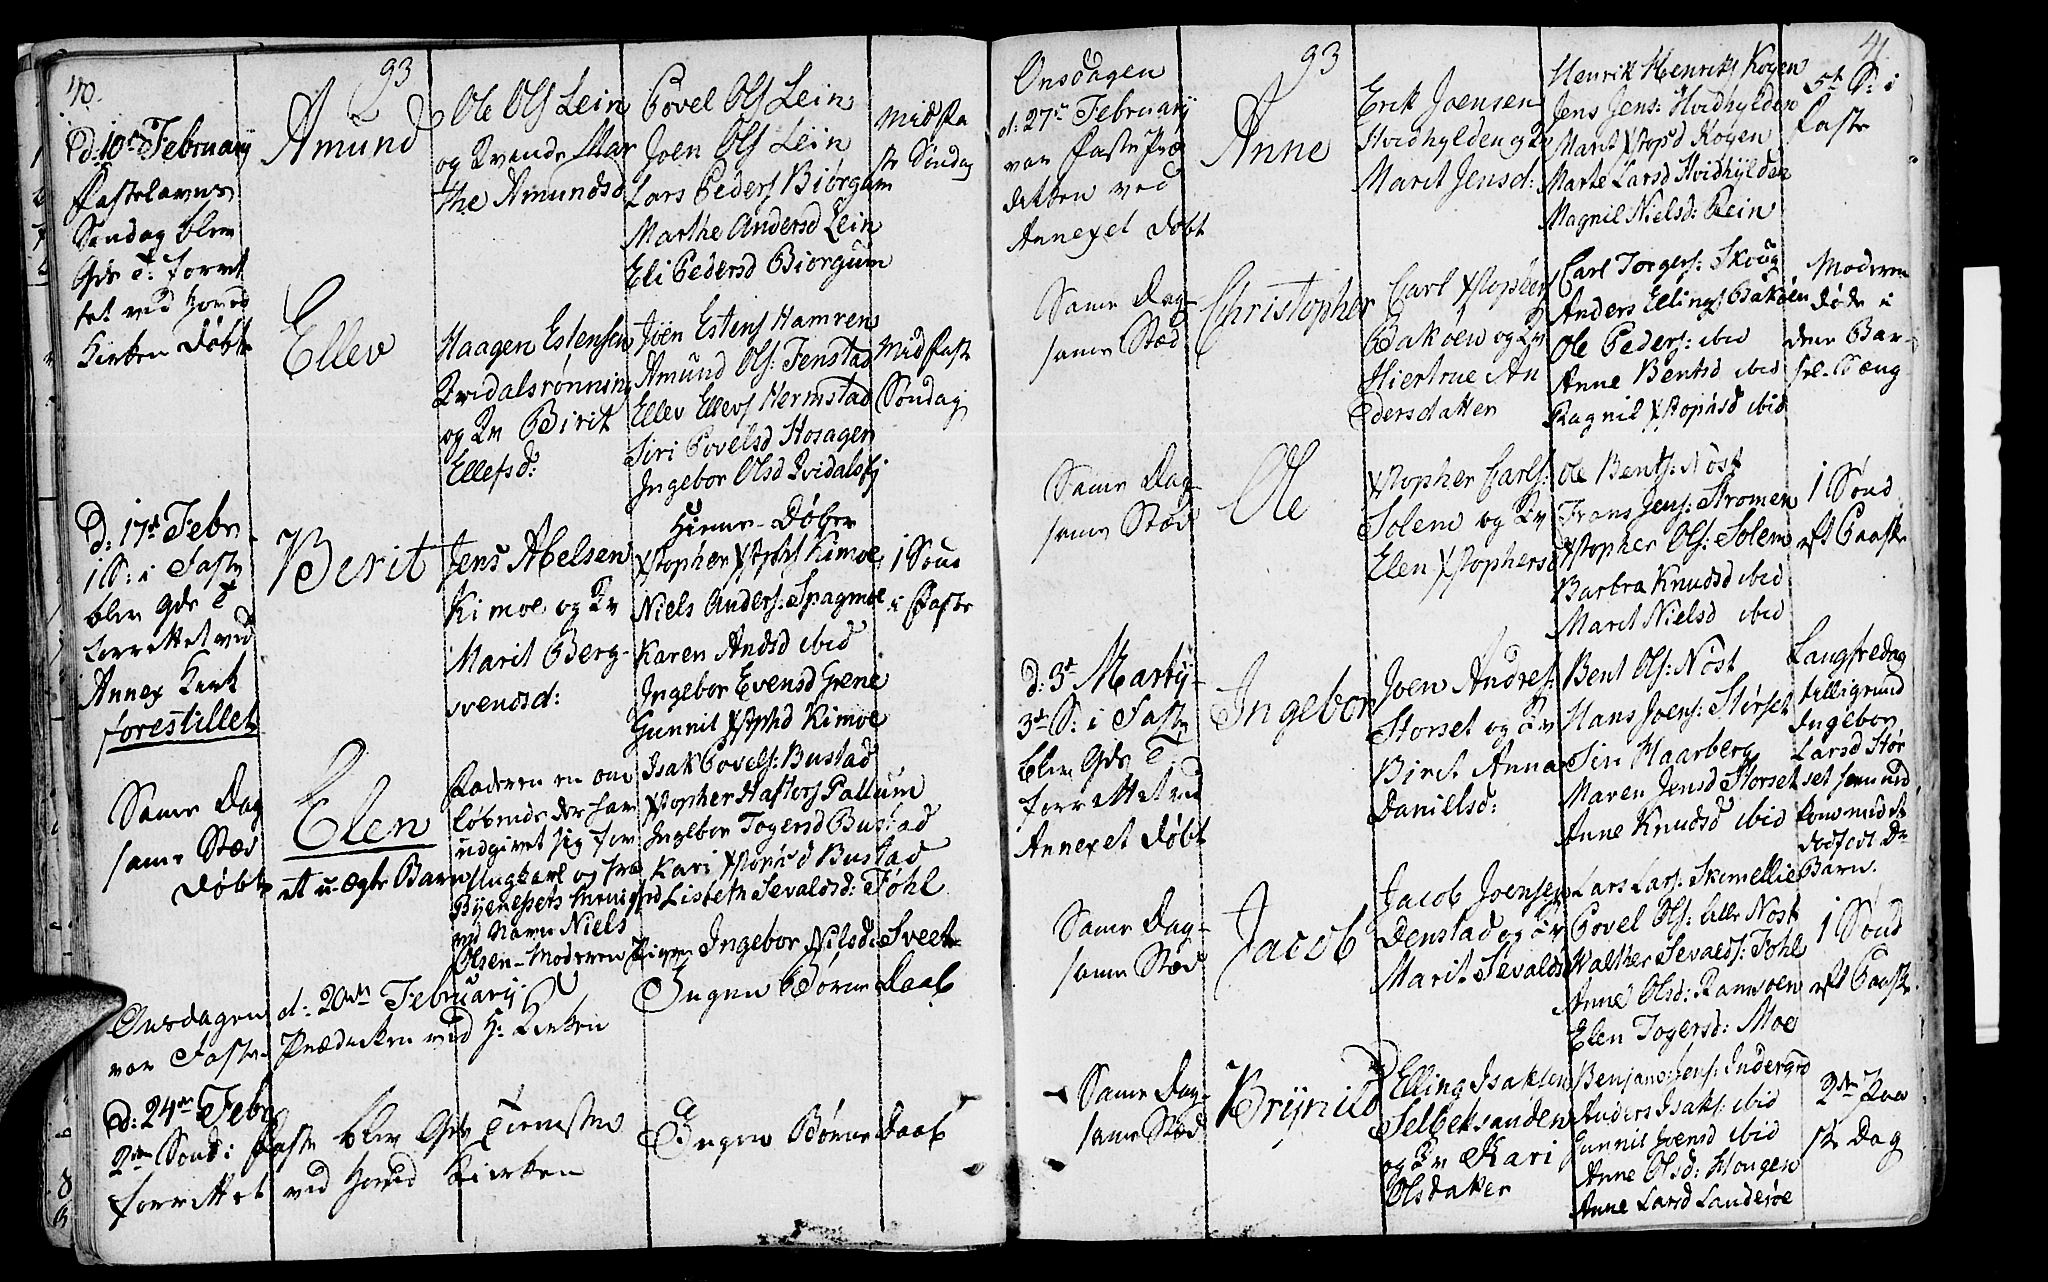 40.
93
D: 10de February
Fastelavns
Søndag blev
Gds T: forret
tet ved Hoved
Kirken Døbt
Amund
Ole Ols Lein
og Qvinde Mar
the Amundsd
Povel Ols Lein
Joen Ols Lein
Lars Peders Biørgum
Marthe Andersd Lein
Eli Pedersd Biørgum
Midfa
ste Søndag
Ellev
Haagen Estensen
Qvidalsrønning
og Qv Birit
Ellefsd:
Joen Estens Hamren
Amund Ols: Jenstad
Ellev Ellevs Hermstad
Siri Povelsd Hosagen
Ingebor Olsd Qvidals
Midfaste
Søndag
D: 17de Febr
1 S: i Faste
blev Gds T
forrettet ved
Annex Kirk
forestillet
Berit
Jens Abelsen
Kimoe og Qv
Marit Berg-
svendsd:
Hieme-Døbt
Xstopher Xstophs Kimoe
Niels Anders: Spagmoe
Karen Andsd ibid
Ingebor Evensd Grene
Gunnil Xstophd Kimoe
1 Sønd
i Faste
Same Dag
same Stæd
Døbt
Elen
et u-ægte Barn
Faderen en om
løbende der har
udgivet sig for
Ungkarl og fra
Byenessets
ved Navn Niels
Olsen - Moderen Pigen Ingebor Nilsd: Sveet
Isak Povels: Bustad
Xstopher Hafters Pallum
Ingebor Togersd Bustad
Kari Xstophsd Bustad
Lisbeth Sevaldsd: Føhl
Onsdagen d: 20de February
var Faste-Prædicken ved H: Kirken
Ingen Børne Daab
D: 24de Febr
2den Sønd: i Faste blev Gds Tieniste
forrettet ved Hoved Kirken
Ingen Børne Daab
41
93
Onsdagen
d: 27de February
var Faste Præ
dicken ved
Annexet Døbt
Anne
Erik Joensen
Hvidhylden og Qv
Marit Jensd:
Henrik Henriks Kogen
Jens Jens: Hvidhylden
Marit Xstopsd Kogen
Marte Larsd Hvidhylden
Magnil Nielsd: Rein
5te S: i
Faste
Same Dag
same Stæd
Christopher
Carl Xstopher
Bakøen og Qv
Hiertrue An
dersdatter
Carl Torgers: Skoug
Anders Ellings Bakøen
Ole Peders: ibid
Anne Bentsd ibid
Ragnil Xstophsd ibid
Moderen
døde i
denne Bar-
sel-Sæng
Same Dag
same Stæd
Ole
Xstopher Carls:
Solem og Qv
Elen Xstophersd
Ole Bents: Nøst
Frans Jens: Strømen
Xstopher Ols: Solem
Barbra Knudsd ibid
Marit Nielsd ibid
1 Sønd
eft Paaske
D: 3de Marty
3de S: i Faste
blev Gds T:
forrettet ved
Annexet Døbt
Ingebor
Joen Andres:
Storset og Qv
Birit Anna
Danielsd:
Bent Ols: Nøst
Hans Joens: Størset
Siri Haarberg
Maren Jensd Storset
Anne Knudsd ibid
Langfredag
tilligemed
Ingebor
Larsd Stør
set som ned
kom med et
dødfødt
Barn.
Same Dag
same Stæd
Jacob
Jacob Joensen
Denstad og Qv
Marit Sevaldsd
Lars Lars: Skomellie
Povel Ols: lille Nøst
Walther Sevalds: Føhl
Anne Olsd: Ramsøen
Elen Togersd: Moe
1 Sønd
eft Paaske
Same Dag
same Stæd
Brynild
Elling Isaksen
Selbeksanden
og Qv Kari
Olsdatter
Benjam: Jens: Indergrd
Anders Isaks: ibid
Gunnil Joensd ibid
Anne Olsd: Hougen
Anne Larsd Landerøe
2den Paa
ske Dag